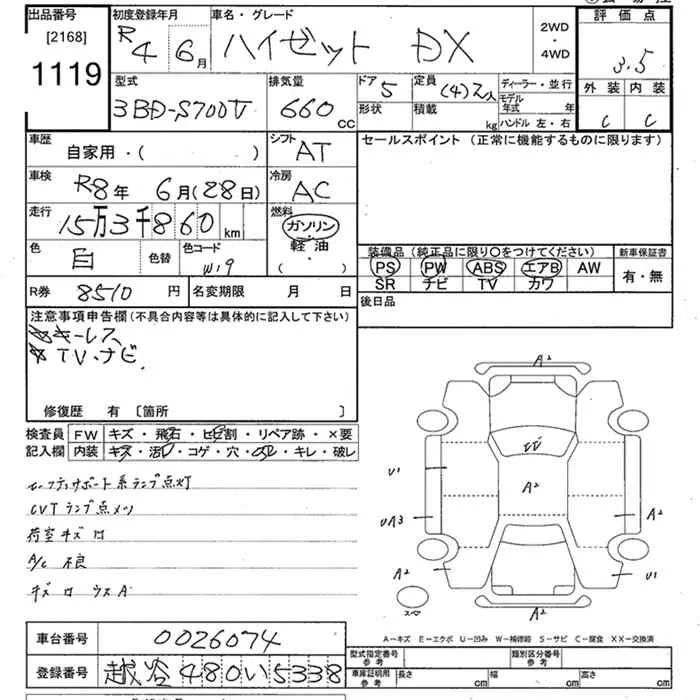 出品番号 初度登録年月 車名・グレード 2WD 評価点
[2168] R4 6月 ハイゼット DX ・ 4WD 3.5
1119
型式 排気量 ドア 定員 ディーラー・並行 外装 内装
3BD-S700V 660 cc 5 (4)2人 モデル年式 年 C C
形状 積載 kg ハンドル 左・右
車歴 シフト セールスポイント (正常に機能するものに限ります)
自家用・( ) AT
車検 R8年 6月(28日) 冷房 AC
走行 15万3千860 km 燃料 ガソリン
軽油
・
( )
色 白 色替 色コード W19
装備品(純正品に限り〇をつけてください) 新車保証書
PS PW ABS エアB AW 有・無
SR ナビ TV カワ
R券 8510 円 名変期限 月 日 後日品
注意事項申告欄(不具合内容等は具体的に記入して下さい)
キーレス
TV、ナビ
修復歴 有 [箇所 ]
検査員 FW キズ・飛石・ヒビ割・リペア跡・×要
記入欄 内装 キズ・汚レ・コゲ・穴・凹・キレ・破レ
セーフティサポート系ランプ点灯
CVTランプ点メツ
荷室キズ凹
A/C 不良
キズ凹 ウスA
A2
W
U1
A2
UA3
A2
A2
U1
スペア
A2
A-キズ E-エクボ U-凹み W-補修跡 S-サビ C-腐食 XX-交換済
車台番号 0026074
登録番号 越谷480い5338
型式指定番号 参考 類別区分番号 参考
車庫証明用 参考 長さ cm 幅 cm 高さ cm